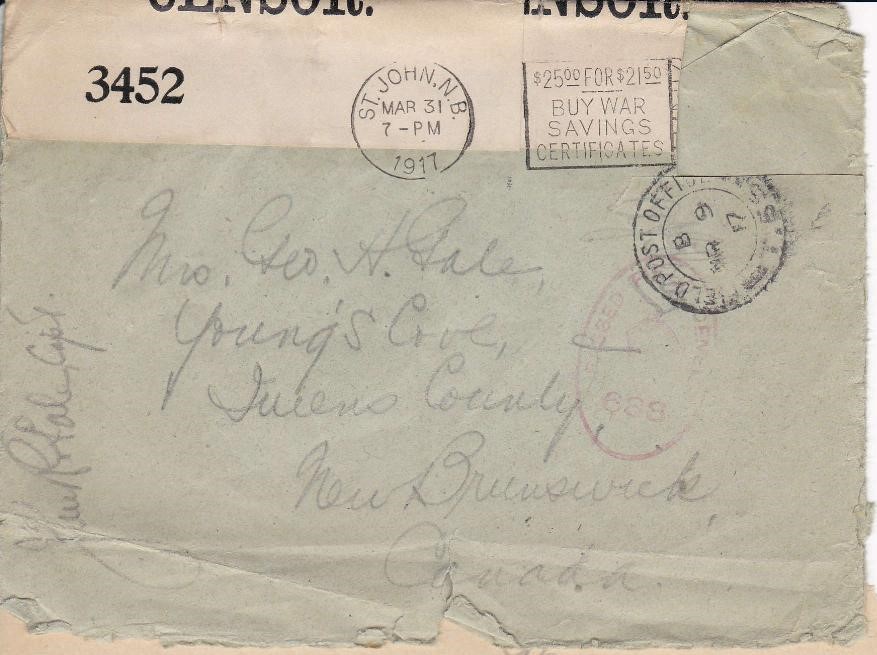 CENSOR.
ENSOR.
3452
ST. JOHN, N.B.
MAR 31
7-PM
1917
$25.00 FOR $21.50
BUY WAR
SAVINGS
CERTIFICATES
FIELD POST OFFICE
B
6
MR
17
Mrs. Geo. H. Gale,
Young's Cove,
Queens County,
New Brunswick,
Canada.
688
R. Gale, Capt.